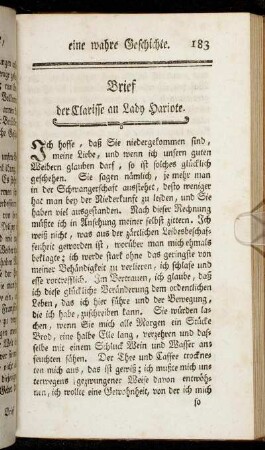 eine wahre Geschichte. 183
Brief
der Clarisse an Lady Hariote.
Ich hoffe, daß Sie niedergekommen sind,
meine Liebe, und wenn ich unsern guten
Weibern glauben darf, so ist solches glücklich
geschehen. Sie sagen nämlich, je mehr man
in der Schwangerschaft ausstehet, desto weniger
hat man bey der Niederkunft zu leiden, und Sie
haben viel ausgestanden. Nach dieser Rechnung
müßte ich in Ansehung meiner selbst zittern. Ich
weiß nicht, was aus der zärtlichen Leibesbeschaf-
fenheit geworden ist, worüber man mich ehmals
beklagte; ich werde stark ohne das geringste von
meiner Behändigkeit zu verlieren, ich schlafe und
esse vortreflich. Im Vertrauen, ich glaube, daß
ich diese glückliche Veränderung dem ordentlichen
Leben, das ich hier führe und der Bewegung,
die ich habe, zuschreiben kann. Sie würden la-
chen, wenn Sie mich alle Morgen ein Stücke
Brod, eine halbe Elle lang, verzehren und das-
selbe mit einem Schluck Wein und Wasser an-
feuchten sähen. Der Thee und Caffee trockne-
ten mich aus, das ist gewiß; ich mußte mich un-
terwegens gezwungener Weise davon entwöh-
nen, ich wollte eine Gewohnheit, von der ich mich
so